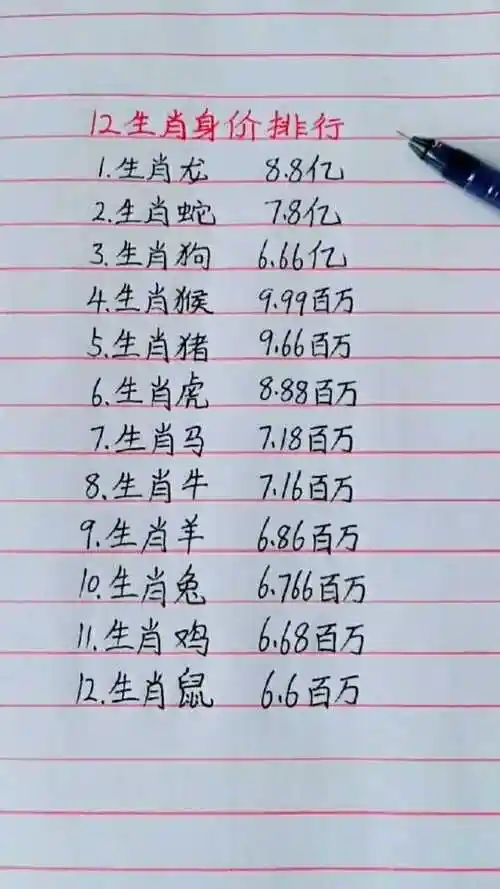 12生肖身价排行
1.生肖龙 8.8亿
2.生肖蛇 7.8亿
3.生肖狗 6.66亿
4.生肖猴 9.99百万
5.生肖猪 9.66百万
6.生肖虎 8.88百万
7.生肖马 7.18百万
8.生肖牛 7.16百万
9.生肖羊 6.86百万
10.生肖兔 6.766百万
11.生肖鸡 6.68百万
12.生肖鼠 6.6百万